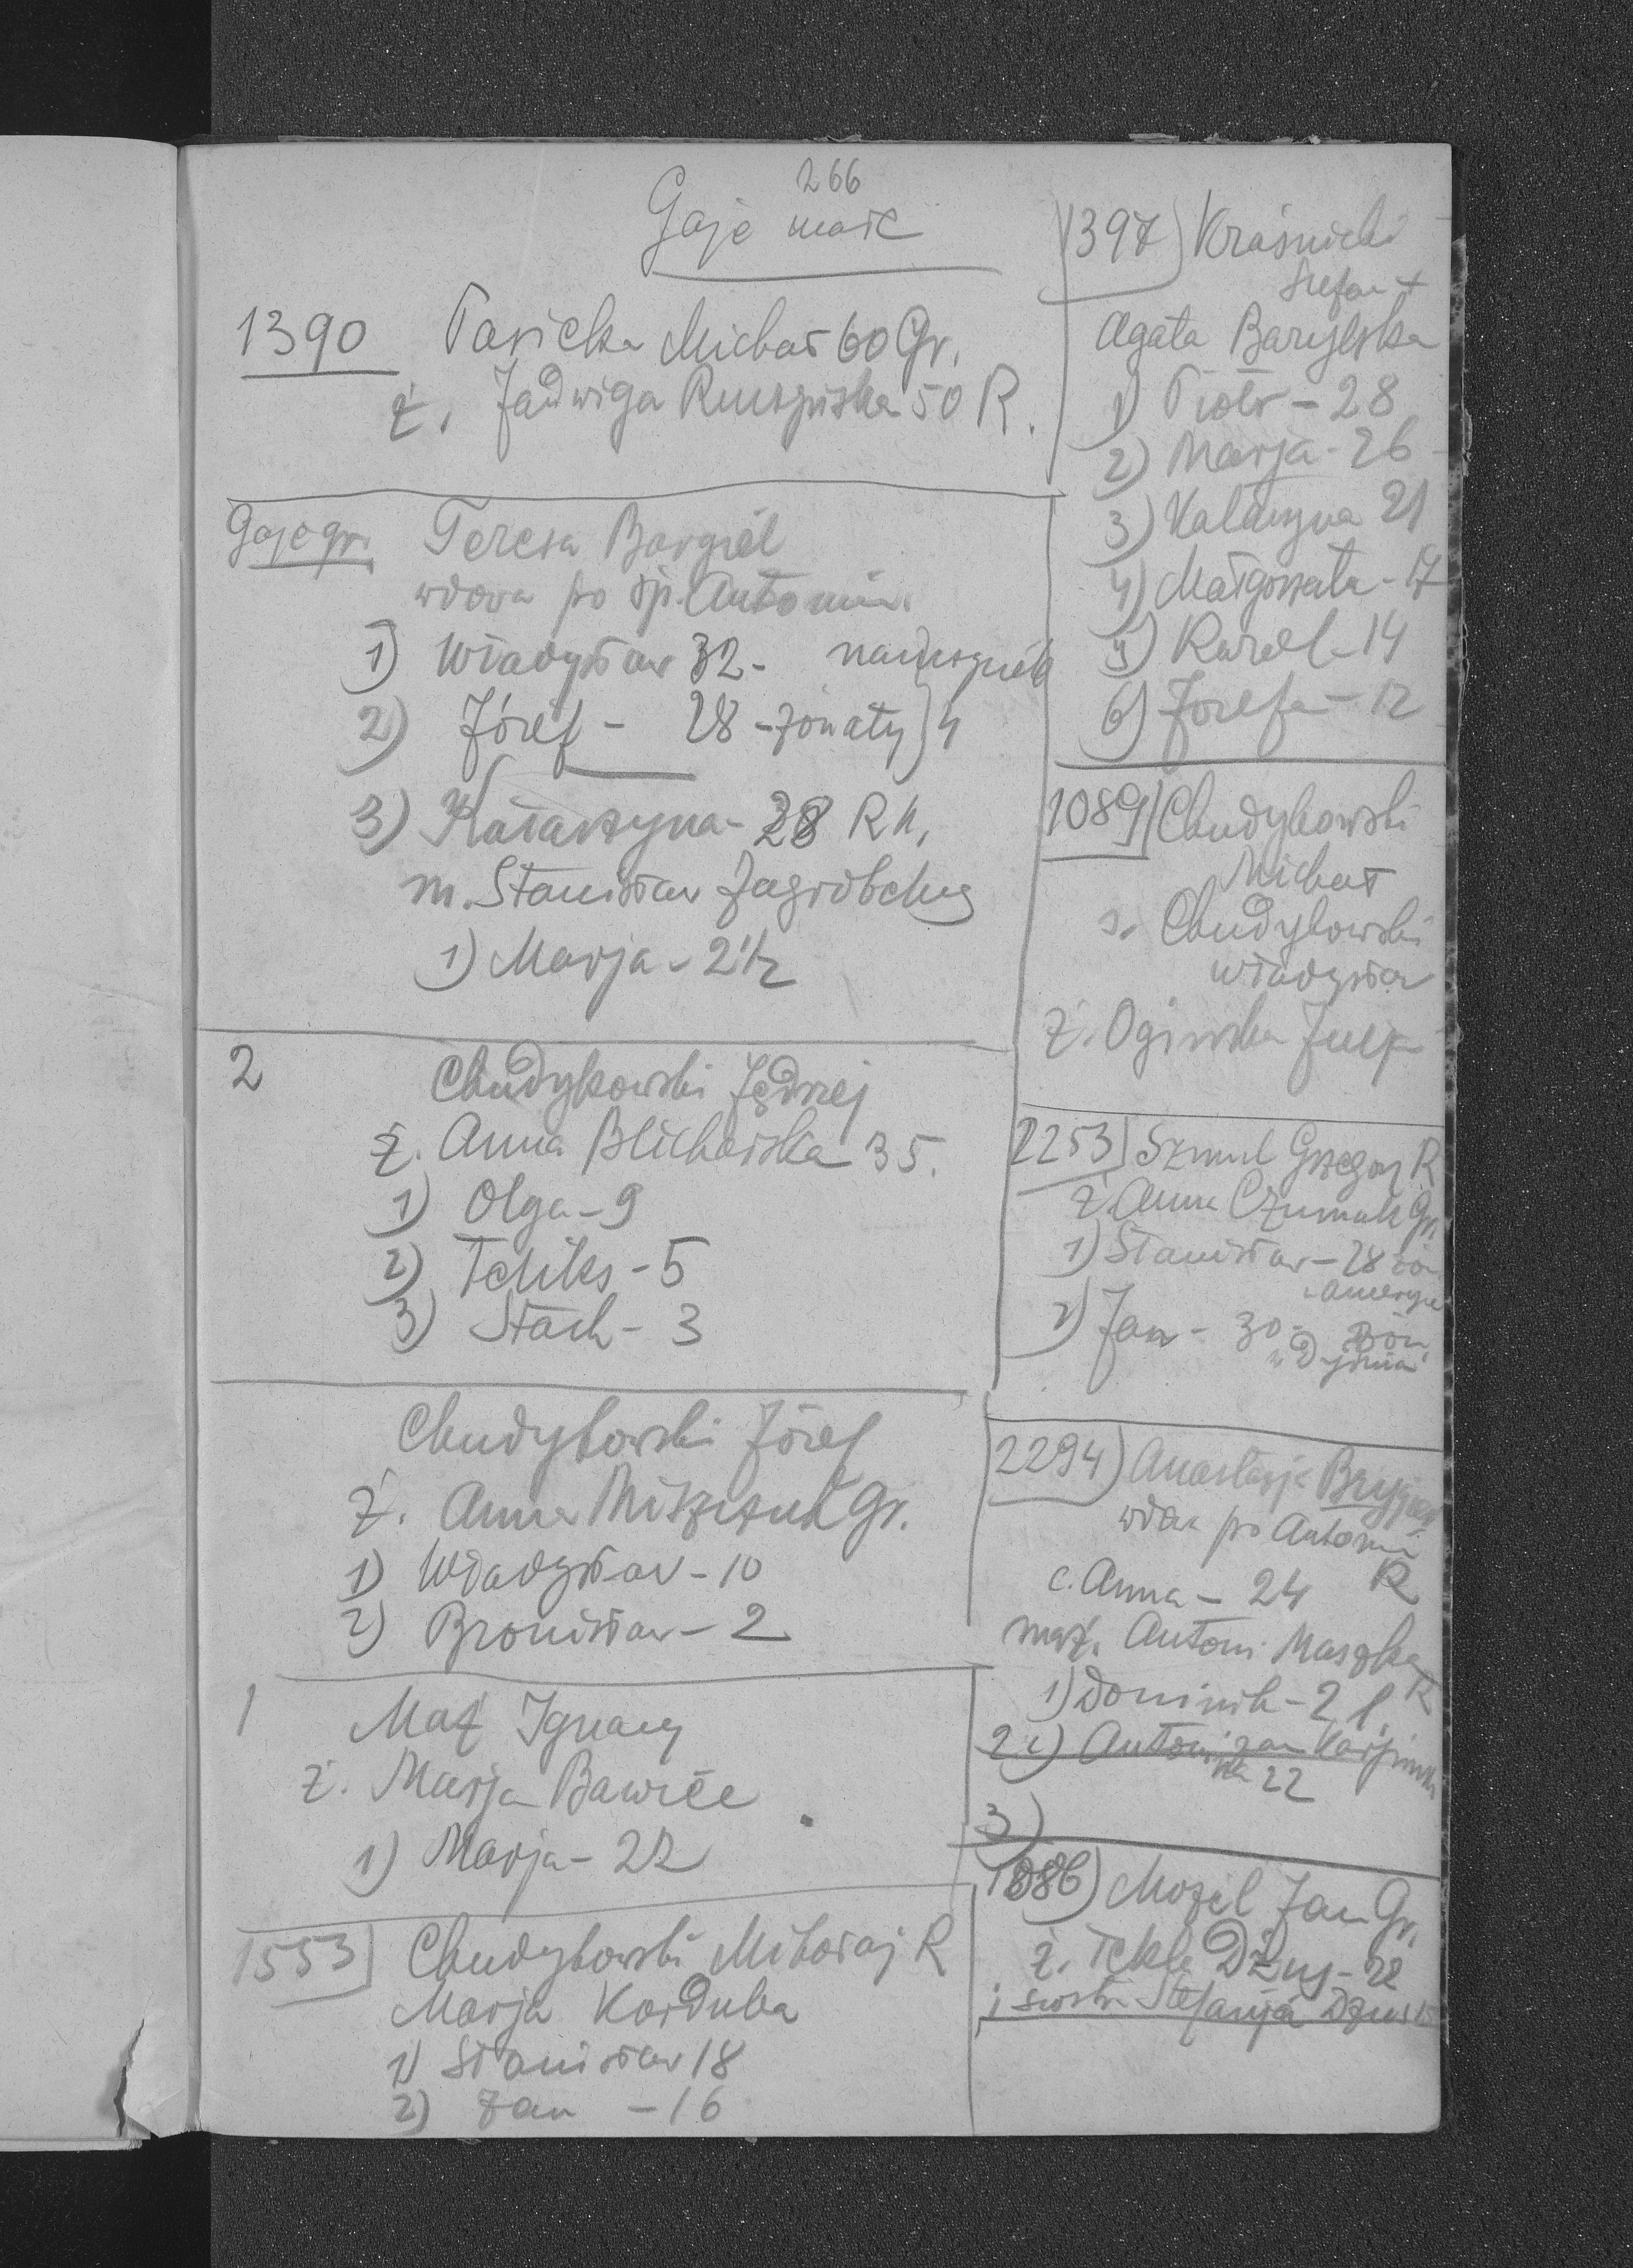 266
Gaje małe
1390 Pasicka Michał 60 Gr.
ż. Jadwiga 50 R.
Gaje gr. Teresa Bargiel
wdowa po śp. Antonim
1) Władysław 32 - nauczyciel
2) Józef - 28 - żonaty) 4
3) Katarzyna - 28 R K,
m. Stanisław Zagrobelny
1) Marja - 2 1/2
2 Chudykowski Jędrzej
ż. Anna Blicharska 35.
1) Olga - 9
2) Feliks - 5
3) Stach - 3
Chudykowski Józef
ż. Anna Gr.
1) Władysław - 10
2) Bronisław - 2
1 Maż Ignacy
ż. Marja
1) Marja - 22
1553) Chudykowski Mikołaj R
Marja Korduba
1) Stanisław 18
2) Jan - 16
1397) Kraśnicki
Stefan +
Agata Barylska
1) Piotr - 28
2) Marja - 26
3) Katarzyna 21
4) Małgorzata - 17
5) Karol - 14
6) Józefa - 12
1089) Chudykowski
Michał
s. Chudykowski
Władysław
ż. Ogińska Julja
2253) Szmul Grzegorz R
ż. Anna Czumak Gr.
1) Stanisław - 28 żon
w Ameryce
2) Jan - 30 - żon.
2294) Anastazja
wdowa po Antonim
R
c. Anna - 24
mąż. Antoni Maszka
R
1) Dominik - 2 l.
2) Antoni
22
3)
1886) Mozil Jan Gr.
ż. Tekla Dżus - 22
i siostra Stefanja Dżus 15